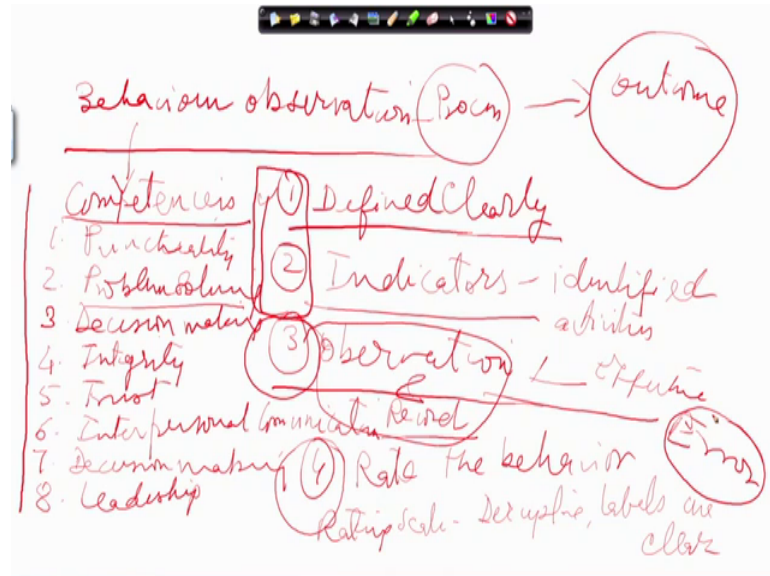 Behaviour observation Process → outcome
Competencies
1. Punctuality
2. Problem Solving
3 Decision making
4. Integrity
5. Trust
6. Interpersonal Communication
7. Decision making
8. Leadership
1 Defined Clearly
2 Indicators - identified
activities
3 Observation Effective
& Record
Error
4 Rate the behavior
Rating scale - Descriptive, labels are
clear